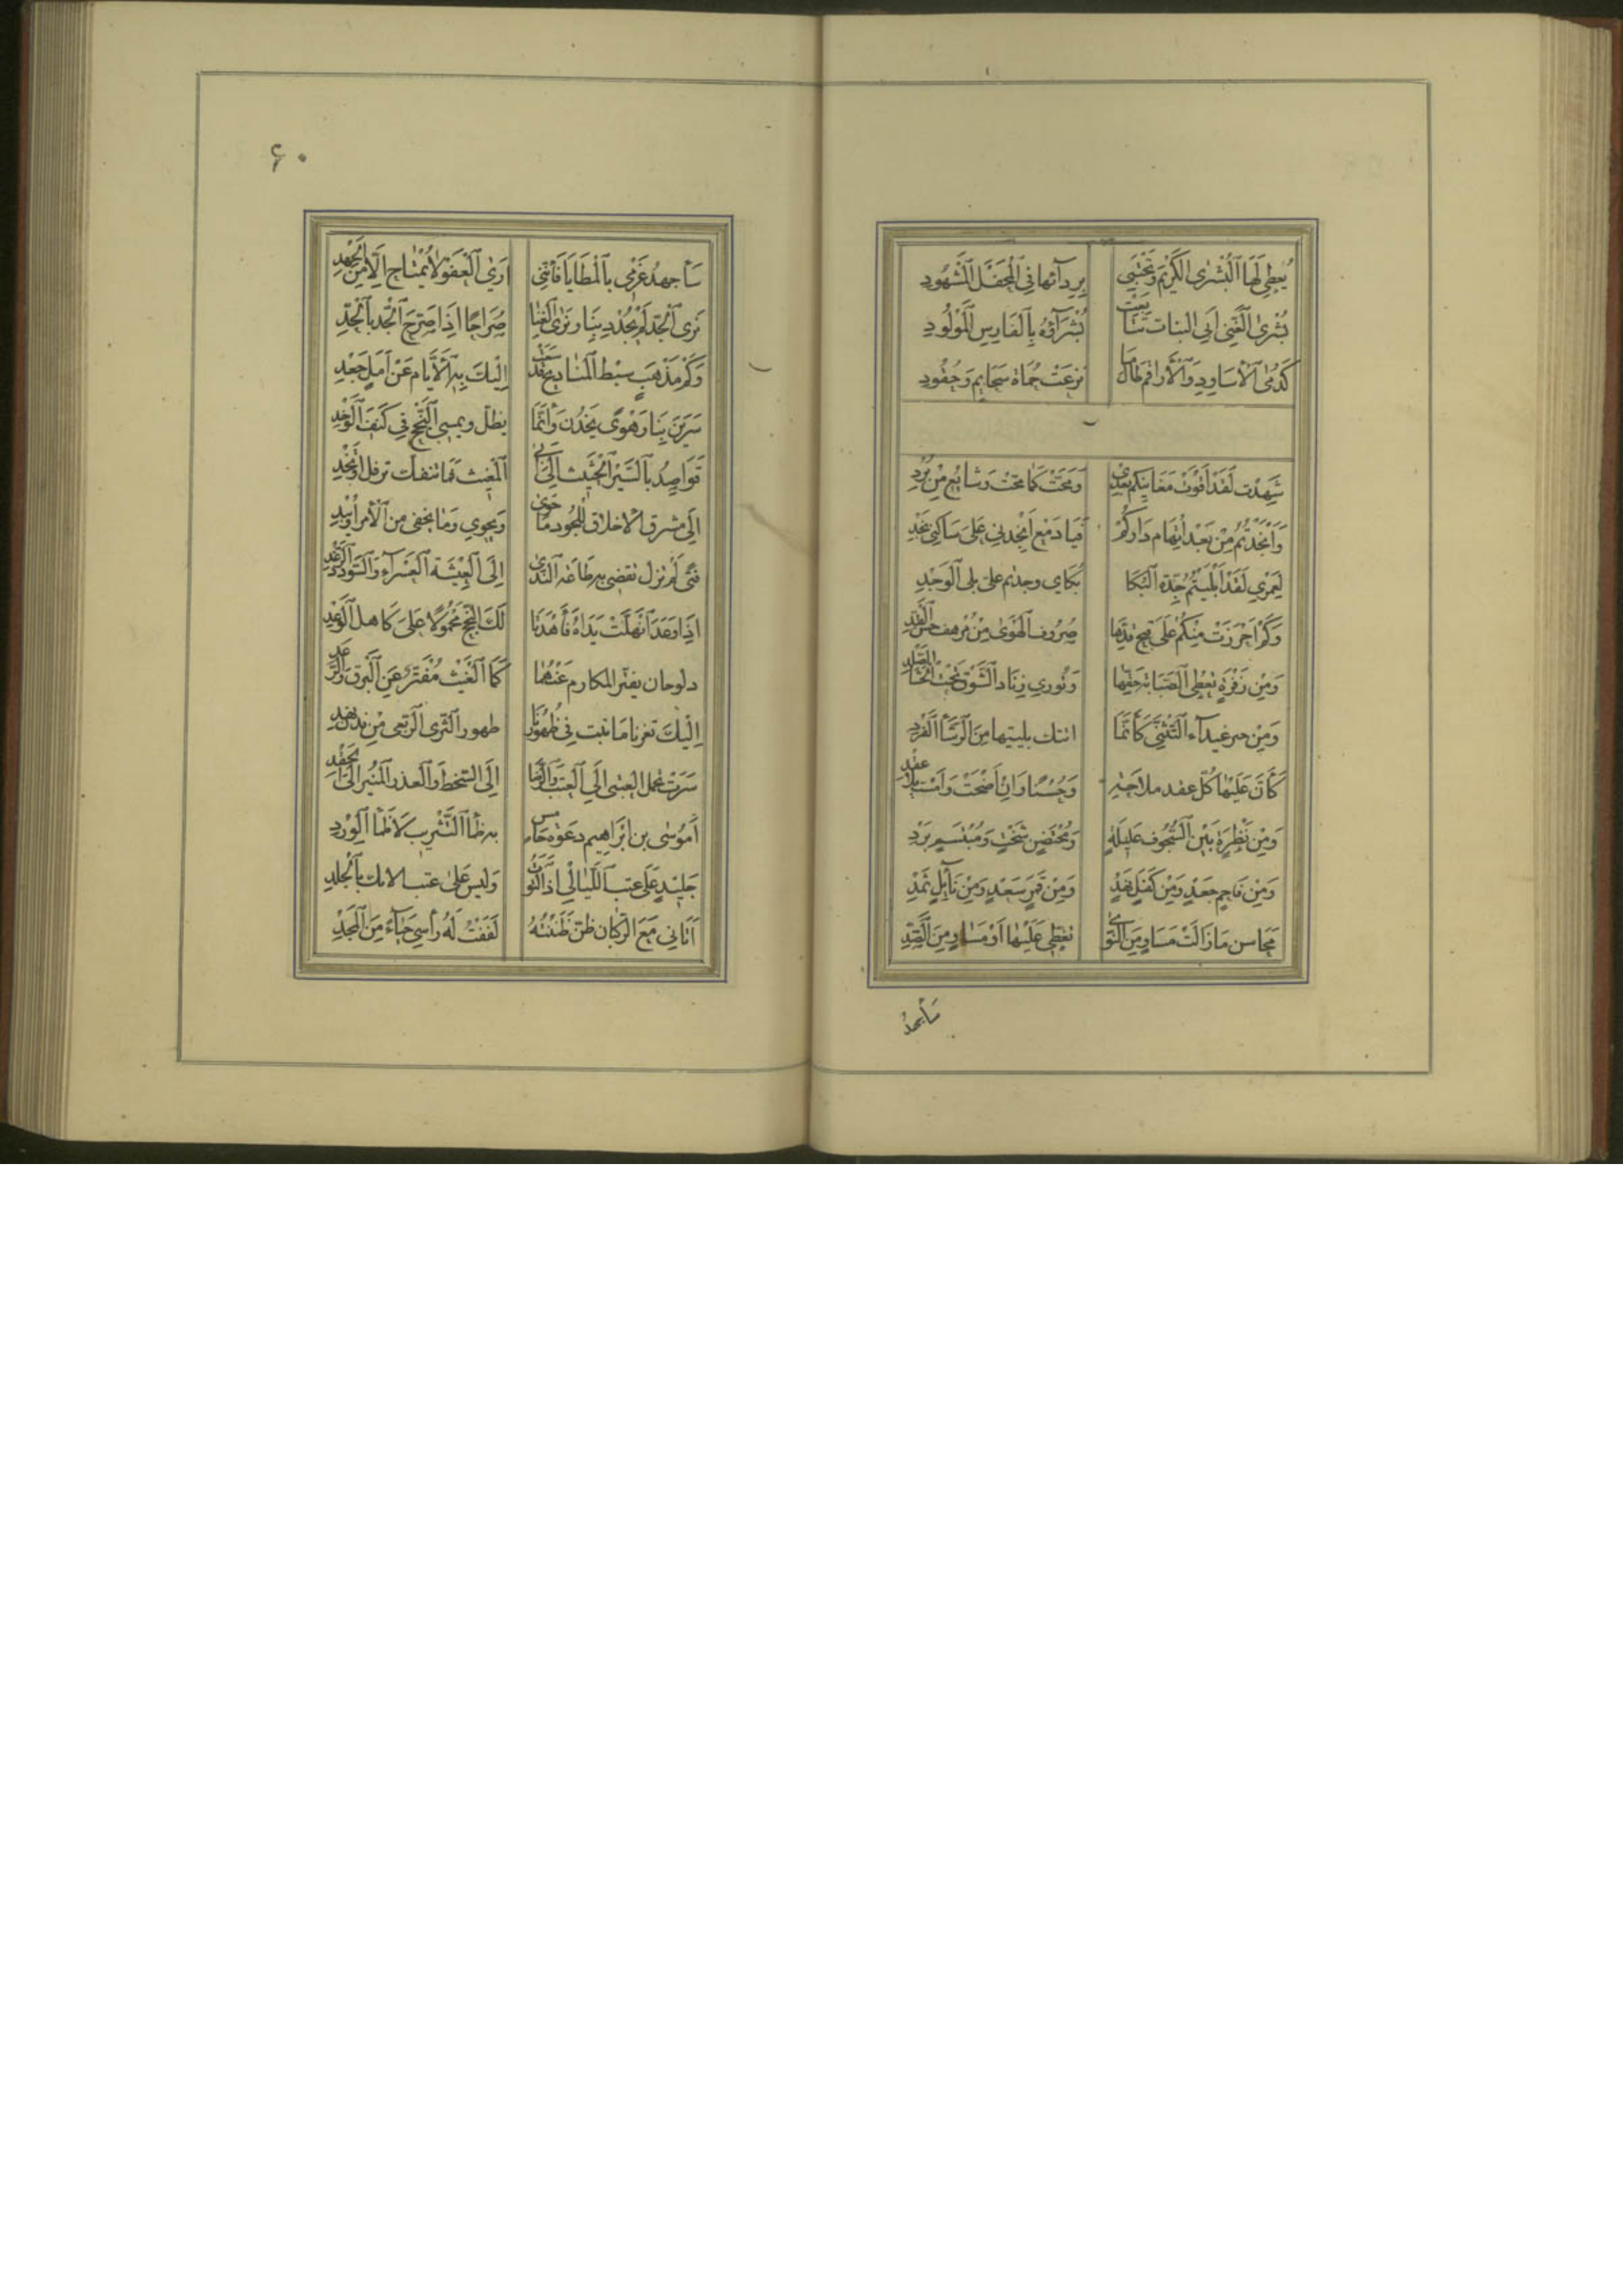 يُعطِي لَهَا البُشْرَى الكَرِيمُ وَيَحْتَبِي بِرِدَآئِهَا فِي المَحْفَلِ المَشْهُودِ
بُشْرَى الغَنِيّ أَبِي البنات تَتَابَعَتْ بُشَرَآؤُهُ بِالفَارِسِ المَوْلُودِ
كَرُقَى الأَسَاوِدِ وَالأَرَاقِمِ طَالَمَا نَزَعَتْ حُمَاةَ سَخَايِمٍ وَحُقُودِ
شَهِدْت لَقَدْ أَقْوَتْ مَغَانِيكُمُ بَعْدِي وَمَحَّتْ كَمَا مَحَّتْ وَشَائِعُ مِنْ بُرْدِ
وَأَنْجَدْتُمُ مِنْ بَعْدِ إِتْهَامِ دَارِكُمْ فَيَا دَمْعُ أَنْجِدْنِي عَلَى سَاكِنِي نَجْدِ
لَعَمْرِي لَقَدْ أَبْلَيْتُمُ جِدَّةَ البُكَا بُكَاي وجدتم على بلى الوَجْدِ
وَكَمْ أَحْرَزَتْ مِنْكُمْ عَلَى قبح قَدِّهَا صُرُوف الهَوَى مِنْ مُرْهَف حَسَنِ القَدِّ
وَمِنْ زَفْرَةٍ تُعْطِي الصَّبَابَةَ حَقَّهَا وَتُورِي زِنَاد الشَّوْقِ تَحْتَ الحَشَا الصَّلْدِ
وَمِنْ جيد غَيْدَآء التَّثَنِّي كَأَنَّمَا اتتك بليتيها مِنَ الرَّشَأِ الفَرْدِ
كَأَنَّ عَلَيْهَا كُلَّ عقد ملاحَةٍ وَحُسْنًا وَإِنْ أَضْحَتْ وَأَمْسَتْ بِلَا عقْدِ
وَمِنْ نَظْرَةٍ بَيْنَ السُّجُوف عَلِيلَةٍ وَمُحْتَضَنٍ شَخْتٍ وَمُبْتَسَمٍ بَرْدِ
وَمِنْ فَاحِمٍ جَعْدٍ وَمِنْ كَفَلٍ نَهْدٍ وَمِنْ قَمَرٍ سَعْدٍ وَمِنْ نَآئِلٍ ثَمْدِ
مَحَاسِن مَا زَالَتْ مَسَاوٍ مِنَ النَّوَى تُغَطِّي عَلَيْهَا أَوْ مَسَاوٍ مِنَ الصَّدِّ
سأجهدُ
٦٠
سَأَجهدُ عَزْمِي بِالمَطَايَا فَإِنَّنِي أَرَى العَفْوَ لَا يُمْتَاحُ إِلَّا مِنَ الجَهْدِ
نَرَى الجدّ لَمْ يُجْدِدْ بِنَا ونرَى الغِنَا صُرَاحًا إِذَا صَرَّحَ الجدّ بِالجِدِّ
وَكَمْ مَذْهَبٍ سبْط المَنَادِحِ قَدْ سَعَتْ إِلَيْكَ بِهِ الأَيَّام عَنْ أَمَلٍ جَعْدِ
سَرَيْنَ بِنَا رَهْوًى يَخِدْنَ وَإِنَّمَا يظلّ ويمسي النُّجْحُ فِي كَنَفِ الوَخْدِ
قَوَاصِدُ بِالسَّيْرِ الحَثِيثِ إِلَى أَبِي المُغِيث فَمَا تنفك ترقل أو تَخْدِ
إِلَى مشرق الأخلاق لِلجُود مَا حَوَى وَيَحْوِي وَمَا يخفى من الأَمْرِ أَوْ يُبْدِ
فَتًى لَمْ تزل تفضي به طَاعَة النَّدَى إِلَى العِيشَة العَسْرَآءِ وَالسُّودَد الرَّغْدِ
إِذَا وَعَدَ انْهَلَّتْ يَدَاهُ فَأَهْدَتَا لَكَ النُّجْحَ مَحْمُولًا عَلَى كَاهِل الوَعْدِ
دلوحان يفتر المكارم عَنْهُمَا كَمَا الغَيْث مُفْتَرٌّ عَنِ البَرْقِ وَالرَّعْدِ
إِلَيْكَ ثغرنا مَا بنت فِي ظُهُورِهَا ظهور الثرى الربعي مِنْ فدن نهدِ
سَرَتْ تحمل العتبى إِلَى العَتْبِ وَالرِّضَا إِلَى السّخط وَالعذر المُبِيرَ إِلَى الحِقْدِ
أَمُوسَى بن إِبْرَاهِيم دعوَة خَامِسٍ بِهِ ظَمَأ التَّثْرِيب لَا ظَمَأ الوِرْدِ
جَلِيد عَلَى عتب اللَّيَالِي إِذَا التَوَتْ وَلَيس عَلَى عتب الأخلاء بِالجَلْدِ
أَتَانِي مَعَ الرُّكْبَان ظَنّ ظَنَنْتُهُ لَفَفْتُ لَهُ رَأْسِي حَيَآءً مِنَ المَجْدِ